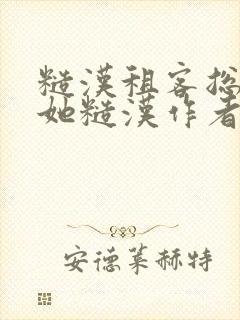 糙漢租客总
她糙漢作者
安德莱赫特